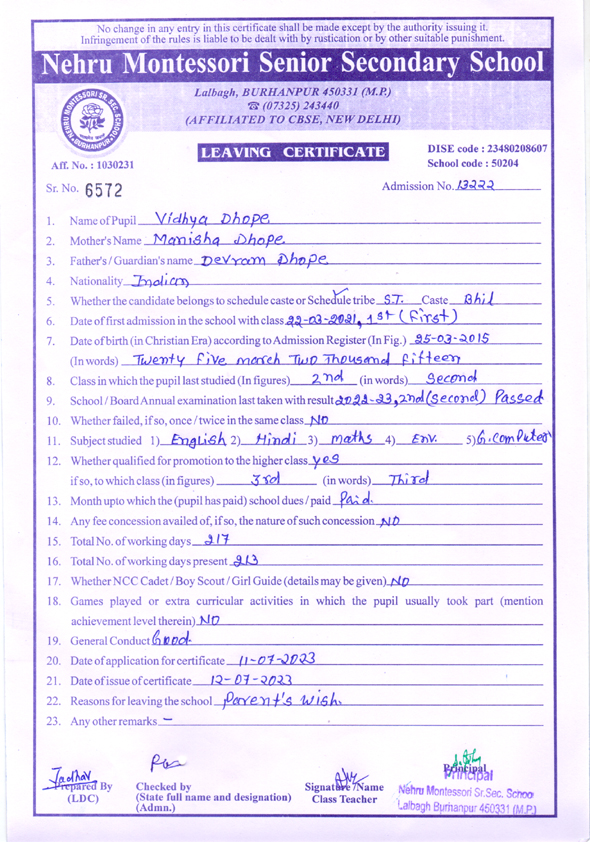 No change in any entry in this certificate shall be made except by the authority issuing it.
Infringement of the rules is liable to be dealt with by rustication or by other suitable punishment.
Nehru Montessori Senior Secondary School
Lalbagh, BURHANPUR 450331 (M.P.)
☎ (07325) 243440
(AFFILIATED TO CBSE, NEW DELHI)
NEHRU MONTESSORI SR. SEC. SCHOOL
BURHANPUR
LEAVING CERTIFICATE
DISE code : 23480208607
School code : 50204
Aff. No. : 1030231
Sr. No. 6572
Admission No. 13222
1. Name of Pupil Vidhya Dhope
2. Mother's Name Manisha Dhope
3. Father's / Guardian's name Devram Dhope
4. Nationality Indian
5. Whether the candidate belongs to schedule caste or Schedule tribe S.T. Caste Bhil
6. Date of first admission in the school with class 22-03-2021, 1st (First)
7. Date of birth (in Christian Era) according to Admission Register (In Fig.) 25-03-2015
(In words) Twenty Five march Two Thousand Fifteen
8. Class in which the pupil last studied (In figures) 2nd (in words) Second
9. School / Board Annual examination last taken with result 2022-23, 2nd (Second) Passed
10. Whether failed, if so, once / twice in the same class NO
11. Subject studied 1) English 2) Hindi 3) maths 4) Env. 5) G.computer
12. Whether qualified for promotion to the higher class yes
if so, to which class (in figures) 3rd (in words) Third
13. Month upto which the (pupil has paid) school dues / paid Paid.
14. Any fee concession availed of, if so, the nature of such concession NO
15. Total No. of working days 217
16. Total No. of working days present 213
17. Whether NCC Cadet / Boy Scout / Girl Guide (details may be given) NO
18. Games played or extra curricular activities in which the pupil usually took part (mention
achievement level therein) NO
19. General Conduct Good.
20. Date of application for certificate 11-07-2023
21. Date of issue of certificate 12-07-2023
22. Reasons for leaving the school Parent's wish.
23. Any other remarks –
Jadhav
Prepared By
(LDC)
Checked by
(State full name and designation)
(Admn.)
Signature /Name
Class Teacher
Principal
Principal
Nehru Montessori Sr.Sec. School
Lalbagh Burhanpur 450331 (M.P.)